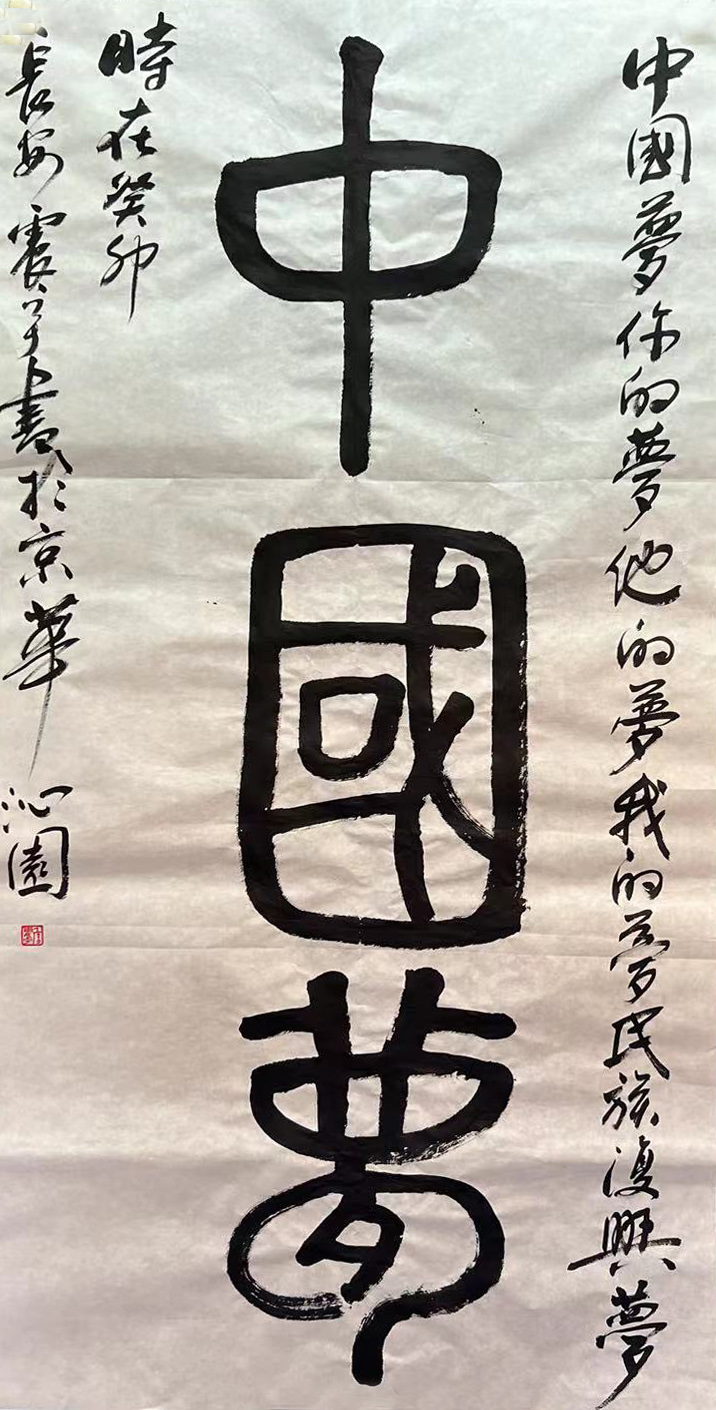 中國夢你的夢他的夢我的夢民族復興夢
中國夢
時在癸卯
長安震書於京華沁園